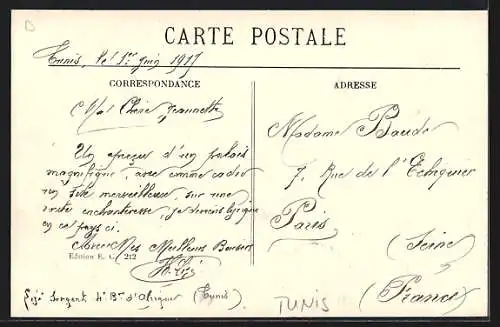 CARTE POSTALE
Tunis, le 1er Juin 1917
CORRESPONDANCE
ADRESSE
Ma Chère Jeannette
Un aperçu d'un palais
magnifique, avec comme cadre
un site merveilleux, sur une
enchanteresse, je
en ce pays ci.
Avec Mes Meilleurs Baisers
Edition E. C. 212
Madame Baude
7, Rue de l'Echiquier
Paris
(Seine)
(France)
Sergent 4e Bon d'Afrique (Tunis)
TUNIS